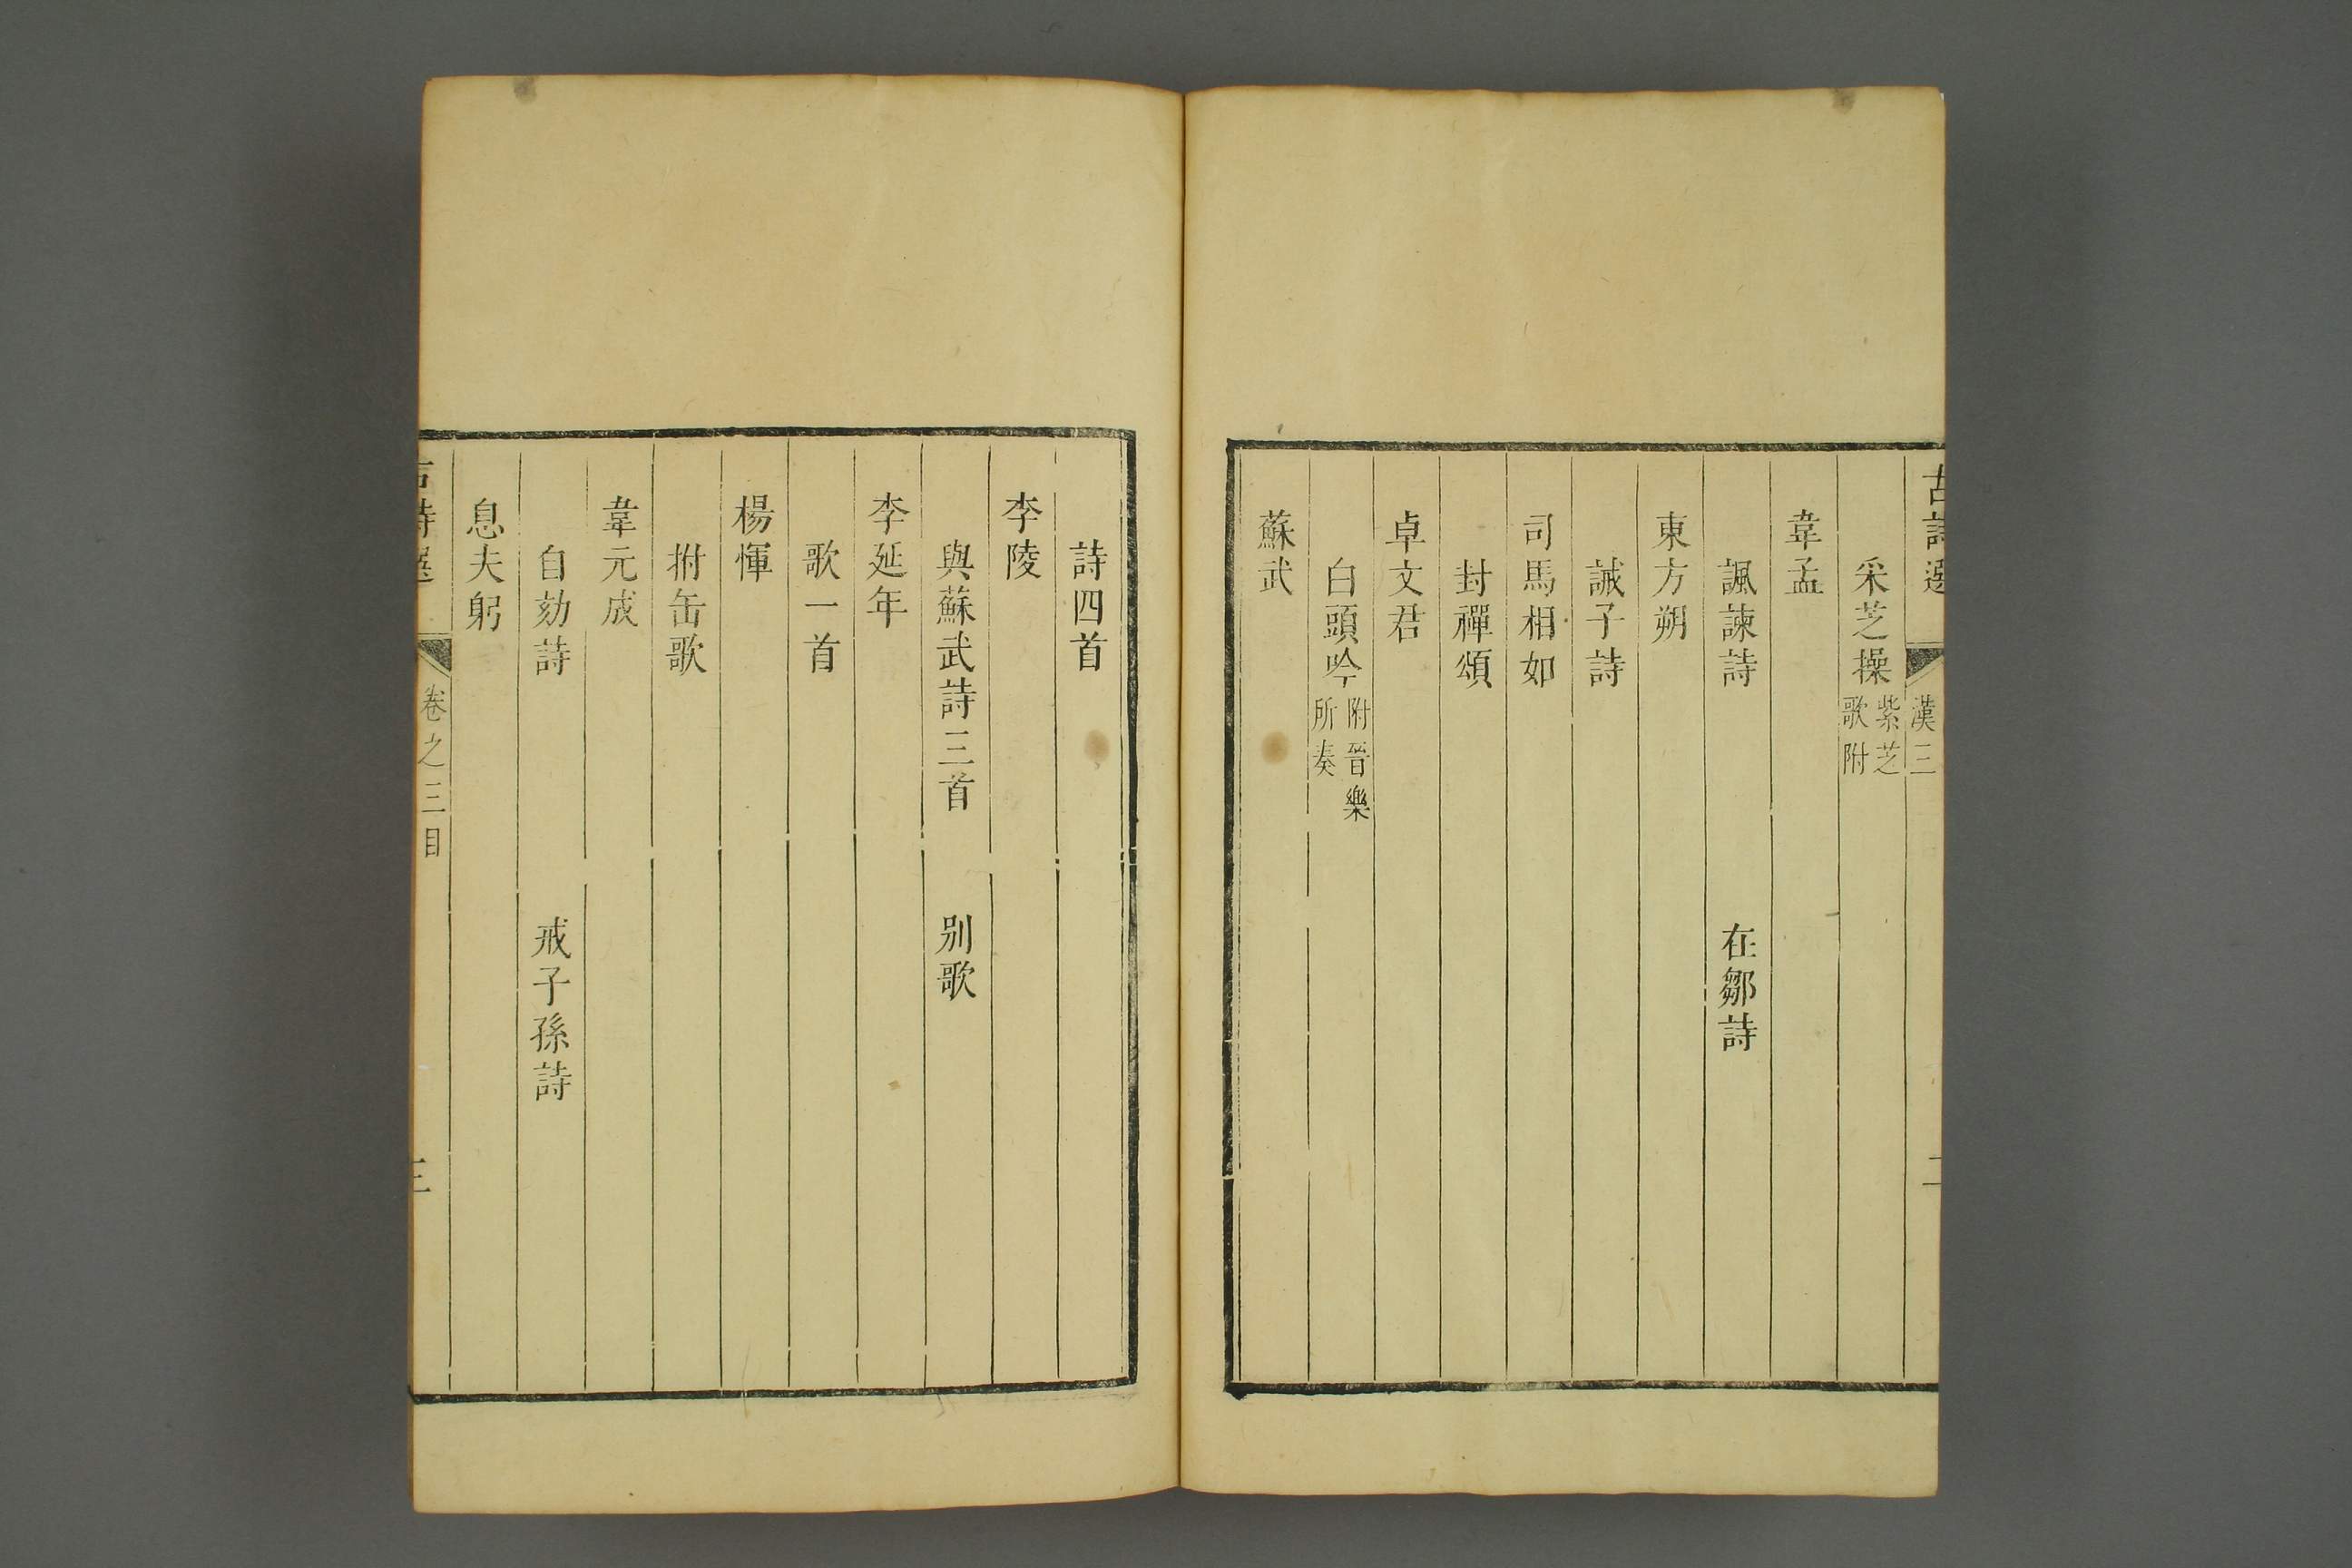 古詩選 漢三 二
采芝操 紫芝歌附
韋孟
諷諫詩 在鄒詩
東方朔
誡子詩
司馬相如
封禪頌
卓文君
白頭吟 附晉樂所奏
蘇武
詩四首
李陵
與蘇武詩三首 別歌
李延年
歌一首
楊惲
拊缶歌
韋元成
自劾詩 戒子孫詩
息夫躬
古詩選 卷之三目 三